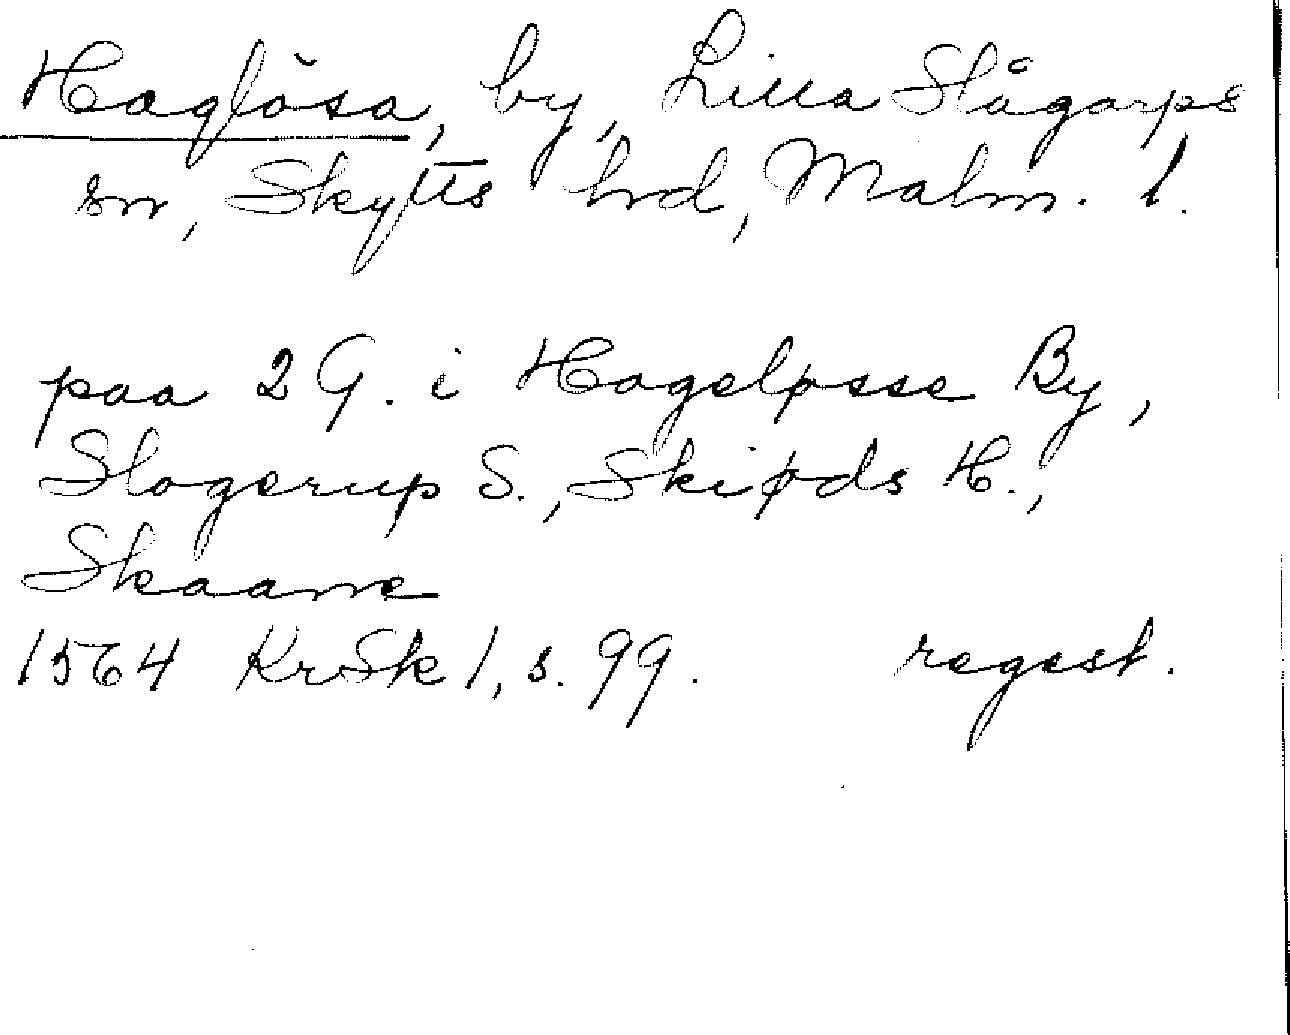 Haglösa, by, Lilla Slågarps
sn, Skytts hrd, Malm. l.
paa 2 G. i Hageløsse By,
Slogerup S., Skiøds H.,
Skaane
1564 KrSk 1, s. 99. regest.